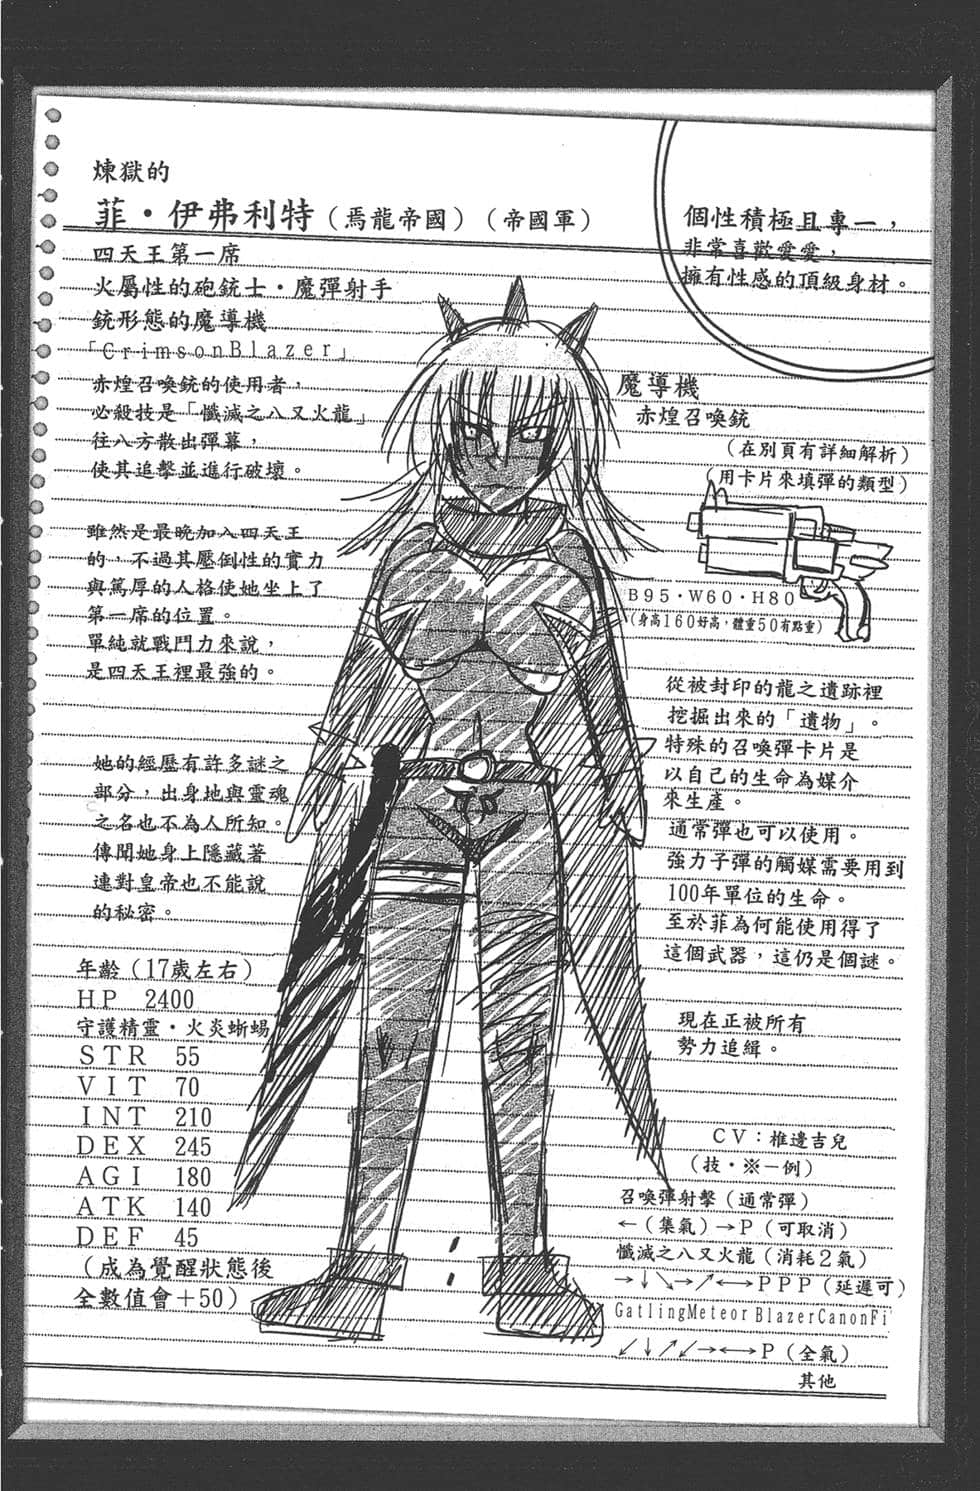 煉獄的
菲・伊弗利特（焉龍帝國）（帝國軍）
四天王第一席
火屬性的砲銃士・魔彈射手
銃形態的魔導機
「CrimsonBlazer」
赤煌召喚銃的使用者，
必殺技是「懺滅之八又火龍」
往八方散出彈幕，
使其追擊並進行破壞。
雖然是最晚加入四天王
的，不過其壓倒性的實力
與篤厚的人格使她坐上了
第一席的位置。
單純就戰鬥力來說，
是四天王裡最強的。
她的經歷有許多謎之
部分，出身地與靈魂
之名也不為人所知。
傳聞她身上隱藏著
連對皇帝也不能說
的秘密。
年齡（17歲左右）
HP 2400
守護精靈・火炎蜥蜴
STR 55
VIT 70
INT 210
DEX 245
AGI 180
ATK 140
DEF 45
（成為覺醒狀態後
全數值會＋50）
個性積極且專一，
非常喜歡愛愛，
擁有性感的頂級身材。
魔導機
赤煌召喚銃
（在別頁有詳細解析）
（用卡片來填彈的類型）
B95・W60・H80
（身高160好高，體重50有點重）
從被封印的龍之遺跡裡
挖掘出來的「遺物」。
特殊的召喚彈卡片是
以自己的生命為媒介
來生產。
通常彈也可以使用。
強力子彈的觸媒需要用到
100年單位的生命。
至於菲為何能使用得了
這個武器，這仍是個謎。
現在正被所有
勢力追緝。
CV：椎邊吉兒
（技・※－例）
召喚彈射擊（通常彈）
←（集氣）→P（可取消）
懺滅之八又火龍（消耗2氣）
→↓↘→↗←→PPP（延遲可）
GatlingMeteorBlazerCanonFi
↙↓↗↙→←→P（全氣）
其他